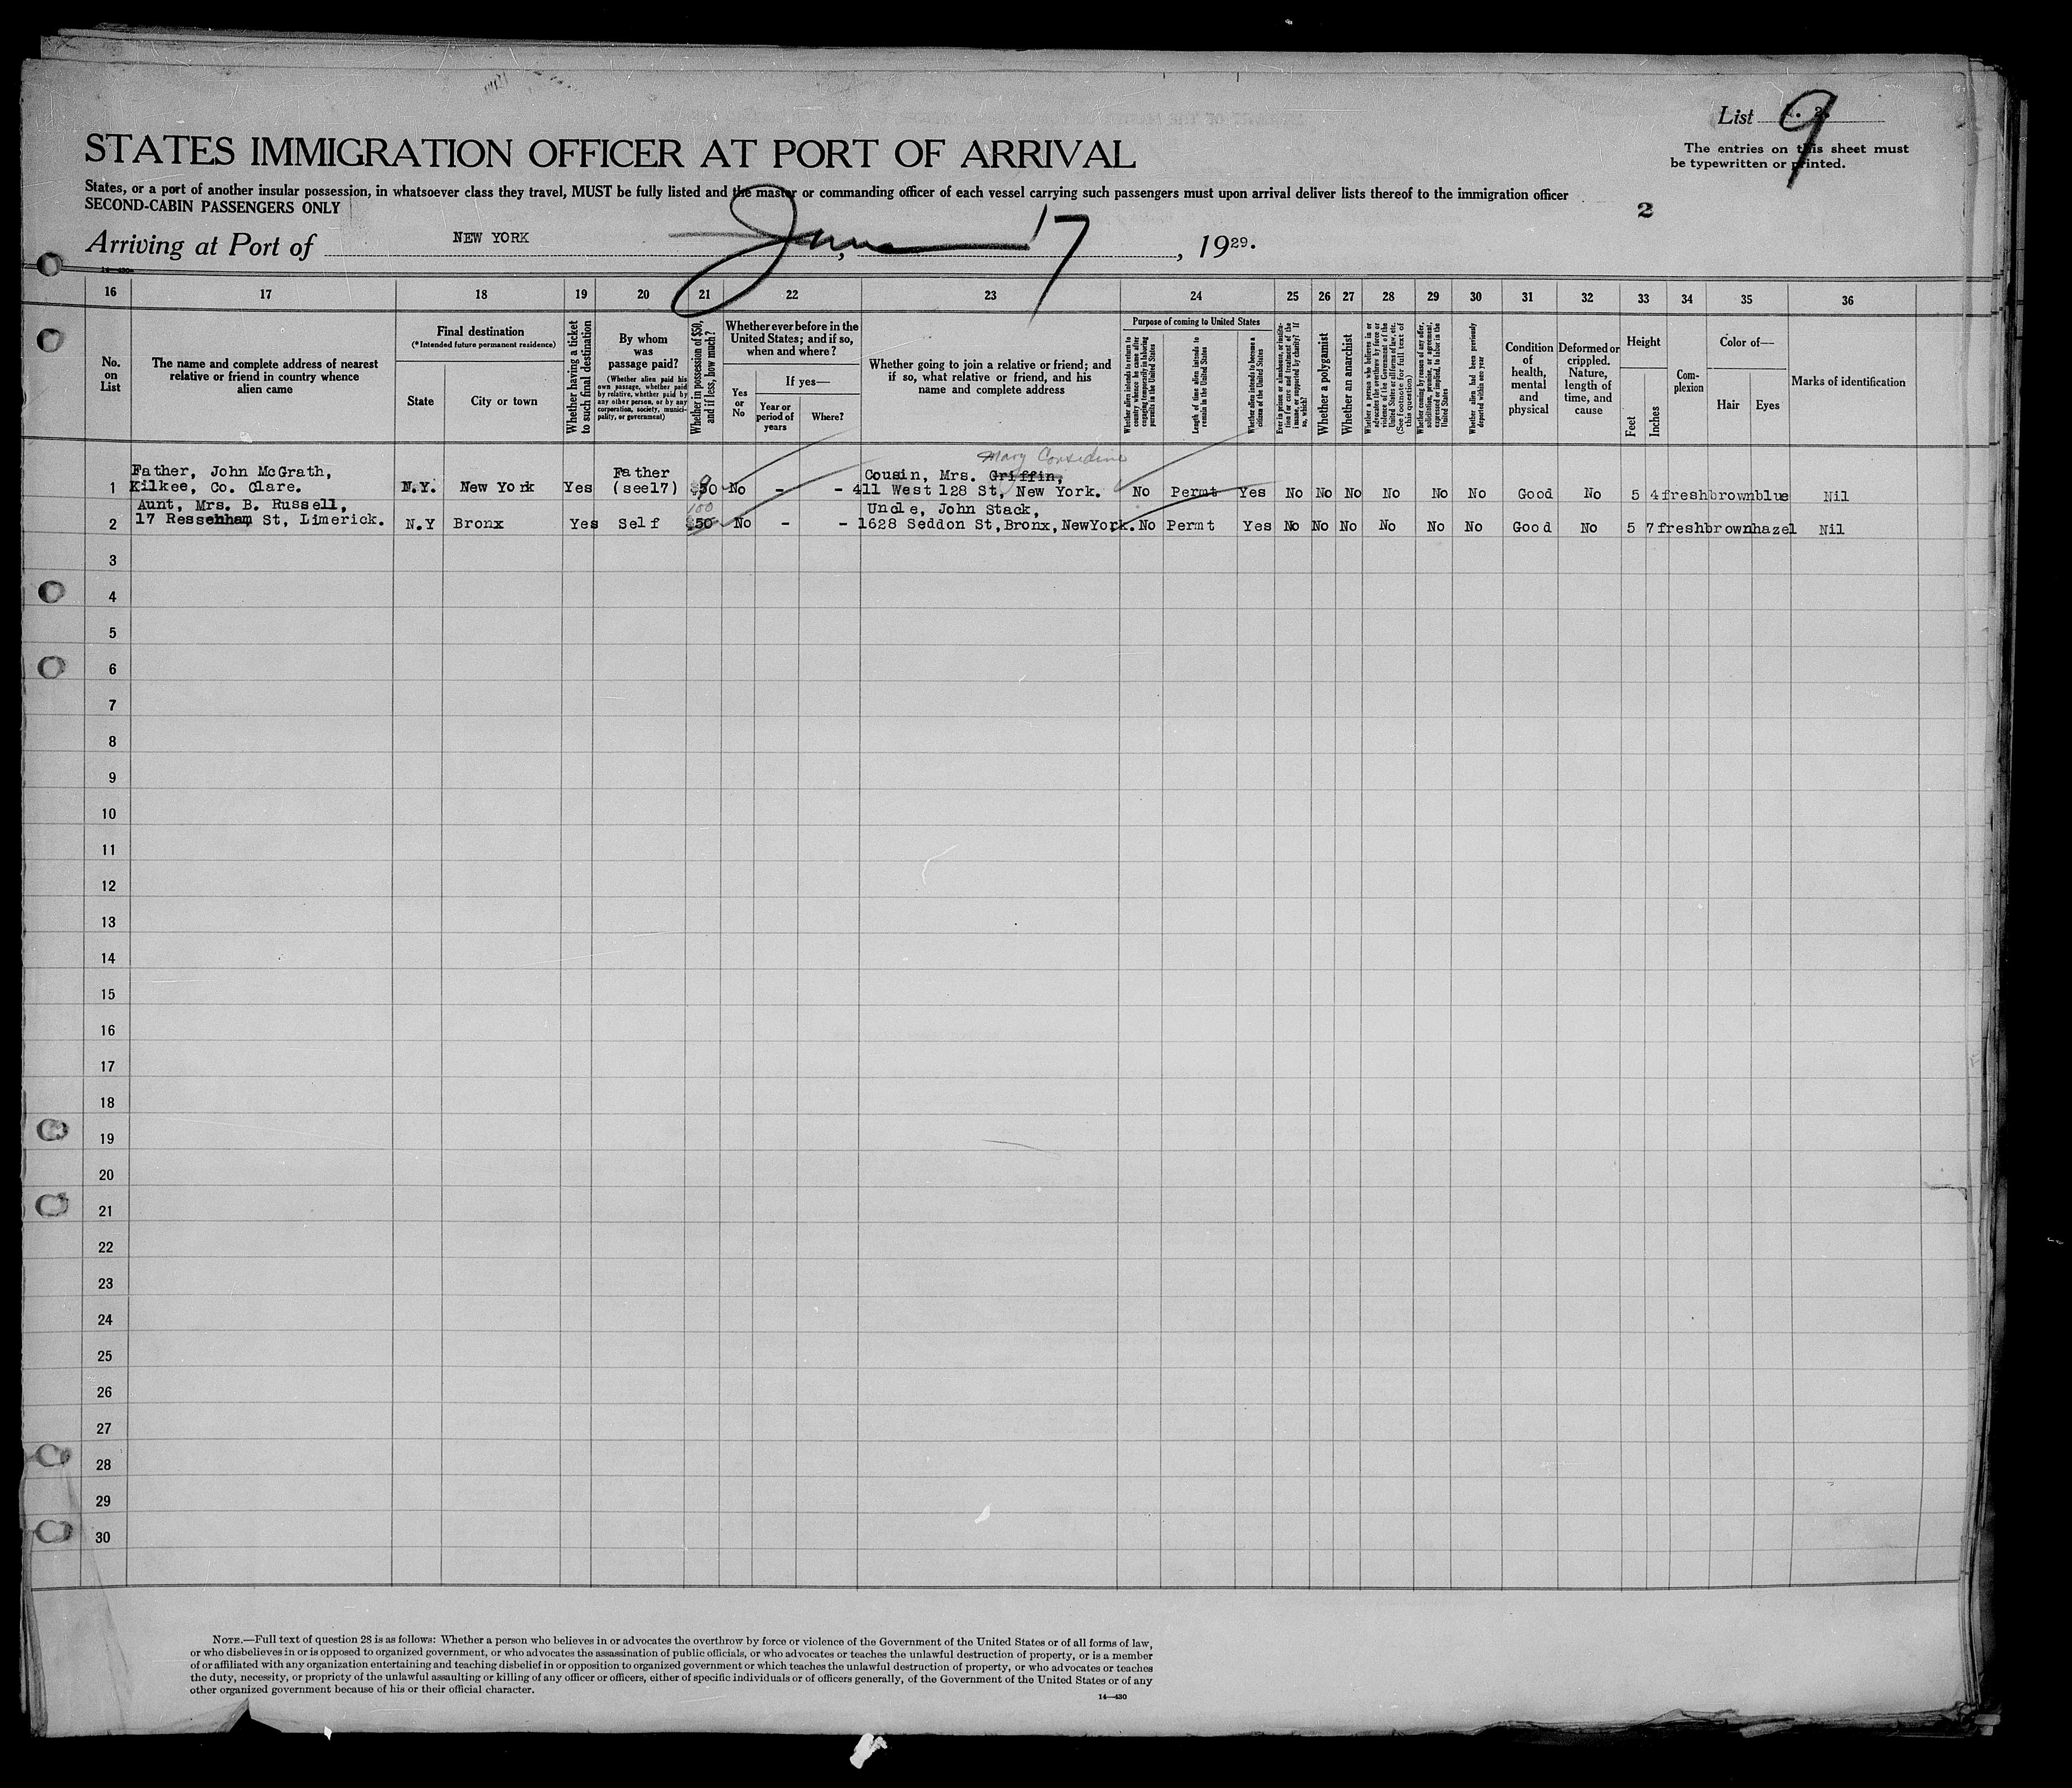 List 9
The entries on this sheet must
be typewritten or printed.
STATES IMMIGRATION OFFICER AT PORT OF ARRIVAL
States, or a port of another insular possession, in whatsoever class they travel, MUST be fully listed and the master or commanding officer of each vessel carrying such passengers must upon arrival deliver lists thereof to the immigration officer
SECOND-CABIN PASSENGERS ONLY
2
Arriving at Port of NEW YORK, June 17, 1929.
14—430
16 17 18 19 20 21 22 23 24 25 26 27 28 29 30 31 32 33 34 35 36
No. on List
The name and complete address of nearest
relative or friend in country whence
alien came
Final destination
(*Intended future permanent residence)
State
City or town
Whether having a ticket
to such final destination
By whom
was
passage paid?
(Whether alien paid his
own passage, whether paid
by relative, whether paid by
any other person, or by any
corporation, society, munici-
pality, or government)
Whether in possession of $50,
and if less, how much?
Whether ever before in the
United States; and if so,
when and where?
Yes
or
No
If yes—
Year or
period of
years
Where?
Whether going to join a relative or friend; and
if so, what relative or friend, and his
name and complete address
Purpose of coming to United States
Whether alien intends to return to
country whence he came after
engaging temporarily in laboring
pursuits in the United States
Length of time alien intends to
remain in the United States
Whether alien intends to become a
citizen of the United States
Ever in prison or almshouse, or institu-
tion for care and treatment of the
insane, or supported by charity? If
so, which?
Whether a polygamist
Whether an anarchist
Whether a person who believes in or
advocates the overthrow by force or
violence of the Government of the
United States or all forms of law, etc.
(See footnote for full text of
this question)
Whether coming by reason of any offer,
solicitation, promise, or agreement,
expressed or implied, to labor in the
United States
Whether alien had been previously
deported within one year
Condition
of
health,
mental
and
physical
Deformed or
crippled.
Nature,
length of
time, and
cause
Height
Feet
Inches
Com-
plexion
Color of—
Hair
Eyes
Marks of identification
Mary Considine
Father, John McGrath, Father Cousin, Mrs. Griffin,
1 Kilkee, Co. Clare. N.Y. New York Yes (see17) $50 No - - 411 West 128 St, New York. No Permt Yes No No No No No No Good No 5 4 fresh brown blue Nil
Aunt, Mrs. B. Russell, 100 Uncle, John Stack,
2 17 Ressenham St, Limerick. N.Y Bronx Yes Self $50 No - - 1628 Seddon St, Bronx, NewYork. No Permt Yes No No No No No No Good No 5 7 fresh brown hazel Nil
3
4
5
6
7
8
9
10
11
12
13
14
15
16
17
18
19
20
21
22
23
24
25
26
27
28
29
30
NOTE.—Full text of question 28 is as follows: Whether a person who believes in or advocates the overthrow by force or violence of the Government of the United States or of all forms of law,
or who disbelieves in or is opposed to organized government, or who advocates the assassination of public officials, or who advocates or teaches the unlawful destruction of property, or is a member
of or affiliated with any organization entertaining and teaching disbelief in or opposition to organized government or which teaches the unlawful destruction of property, or who advocates or teaches
the duty, necessity, or propriety of the unlawful assaulting or killing of any officer or officers, either of specific individuals or of officers generally, of the Government of the United States or of any
other organized government because of his or their official character.
14—430